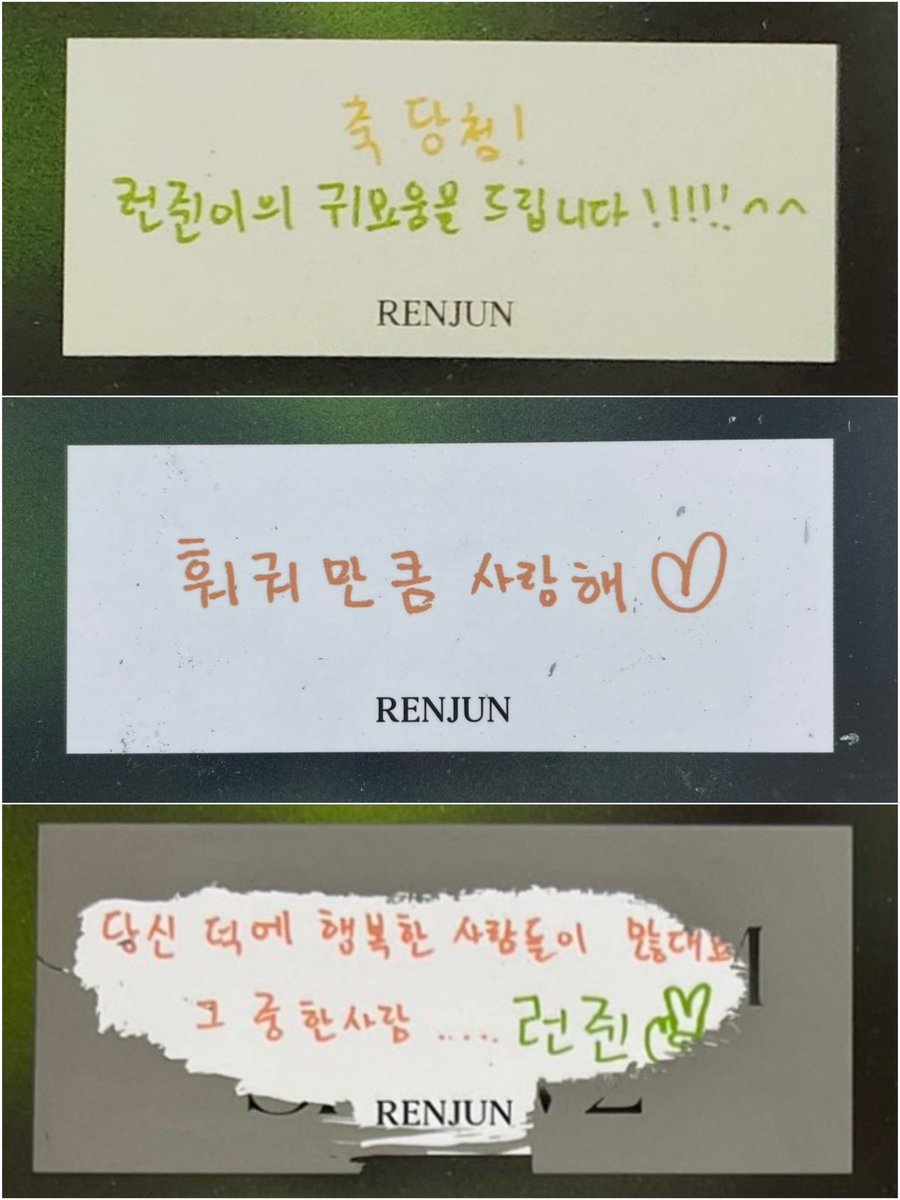 축 당첨!
런쥔이의 귀요움을 드립니다!!!!!^^
RENJUN
훠궈만큼 사랑해♡
RENJUN
당신 덕에 행복한 사람들이 많대요
그 중 한사람 ..... 런쥔
RENJUN